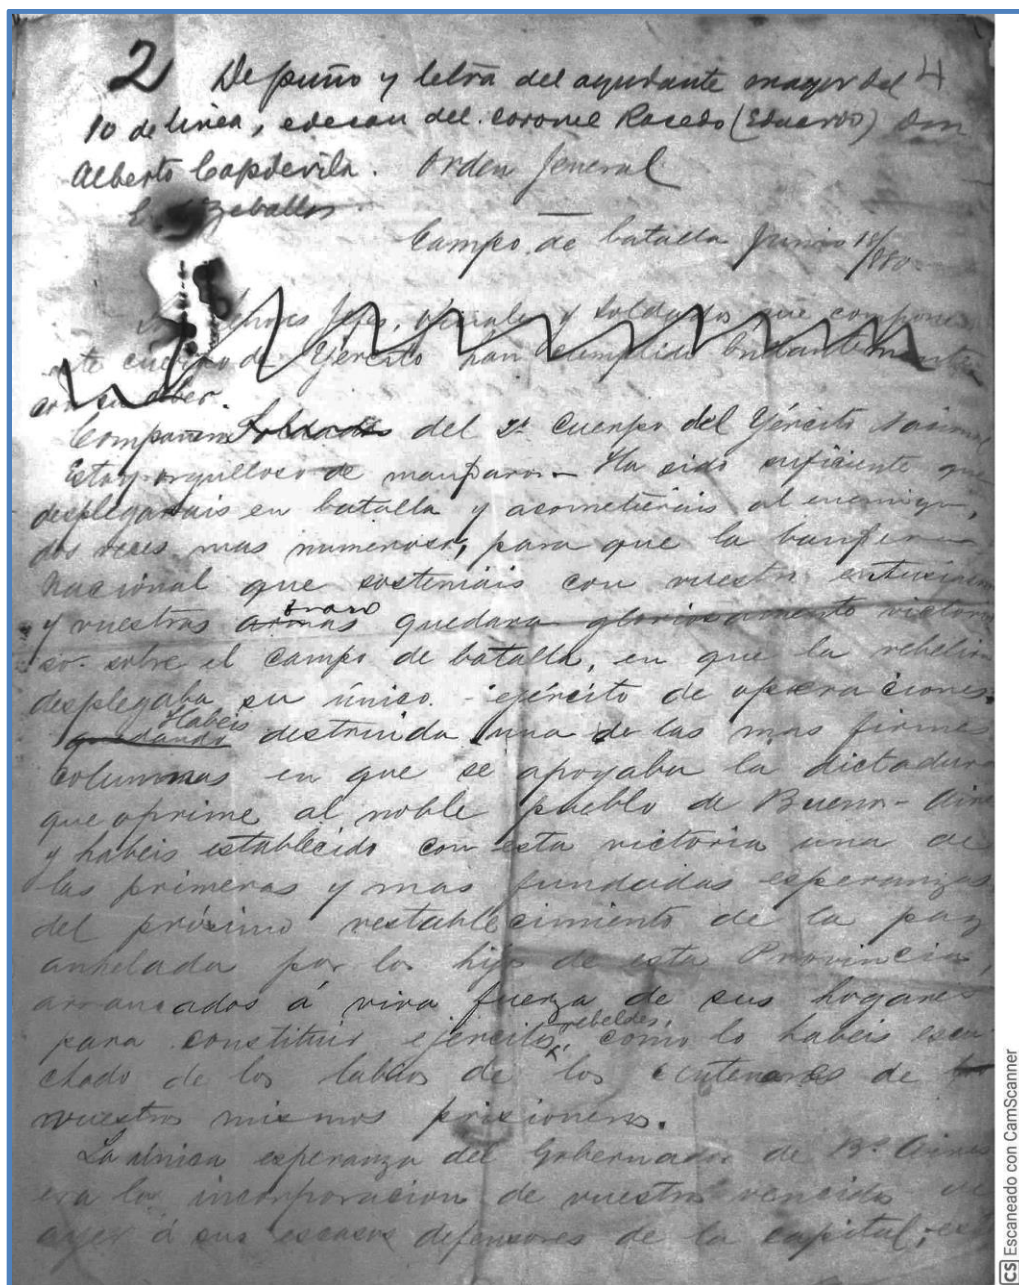 2 De puño y letra del ayudante mayor del 4
10 de linea, edecan del coronel Racedo (Eduardo) Don
Alberto Capdevila. Orden Jeneral
Zeballos
Campo de batalla Junio 18/880
Jefes, oficiales y soldados que componen
este cuerpo de Ejército han cumplido
con su deber.
Compañeros Soldados del 2º Cuerpo del Ejército Nacional
Estoy orgulloso de mandaros. Ha sido suficiente que
desplegarais en batalla y acometierais al enemigo,
dos veces mas numeroso, para que la bandera
Nacional que sosteniais con vuestro entusiasmo
brazo
y vuestras armas quedara gloriosamente victorio
so sobre el campo de batalla, en que la rebelion
desplegaba su único ejército de operaciones.
Habeis
quedando destruida una de las mas firmes
columnas en que se apoyaba la dictadura
que oprime al noble pueblo de Buenos-Aires
y habeis establecido con esta victoria una de
las primeras y mas fundadas esperanzas
del próximo restablecimiento de la paz
anhelada por los hijos de esta Provincia,
arrancados á viva fuerza de sus hogares
rebeldes,
para constituir ejércitos como lo habeis escu
chado de los labios de los centenares de
vuestros mismos prisioneros.
La única esperanza del Gobernador de Bs Aires
era la incorporacion de vuestros vencidos de
ayer á sus escasos defensores de la capital;
CS Escaneado con CamScanner